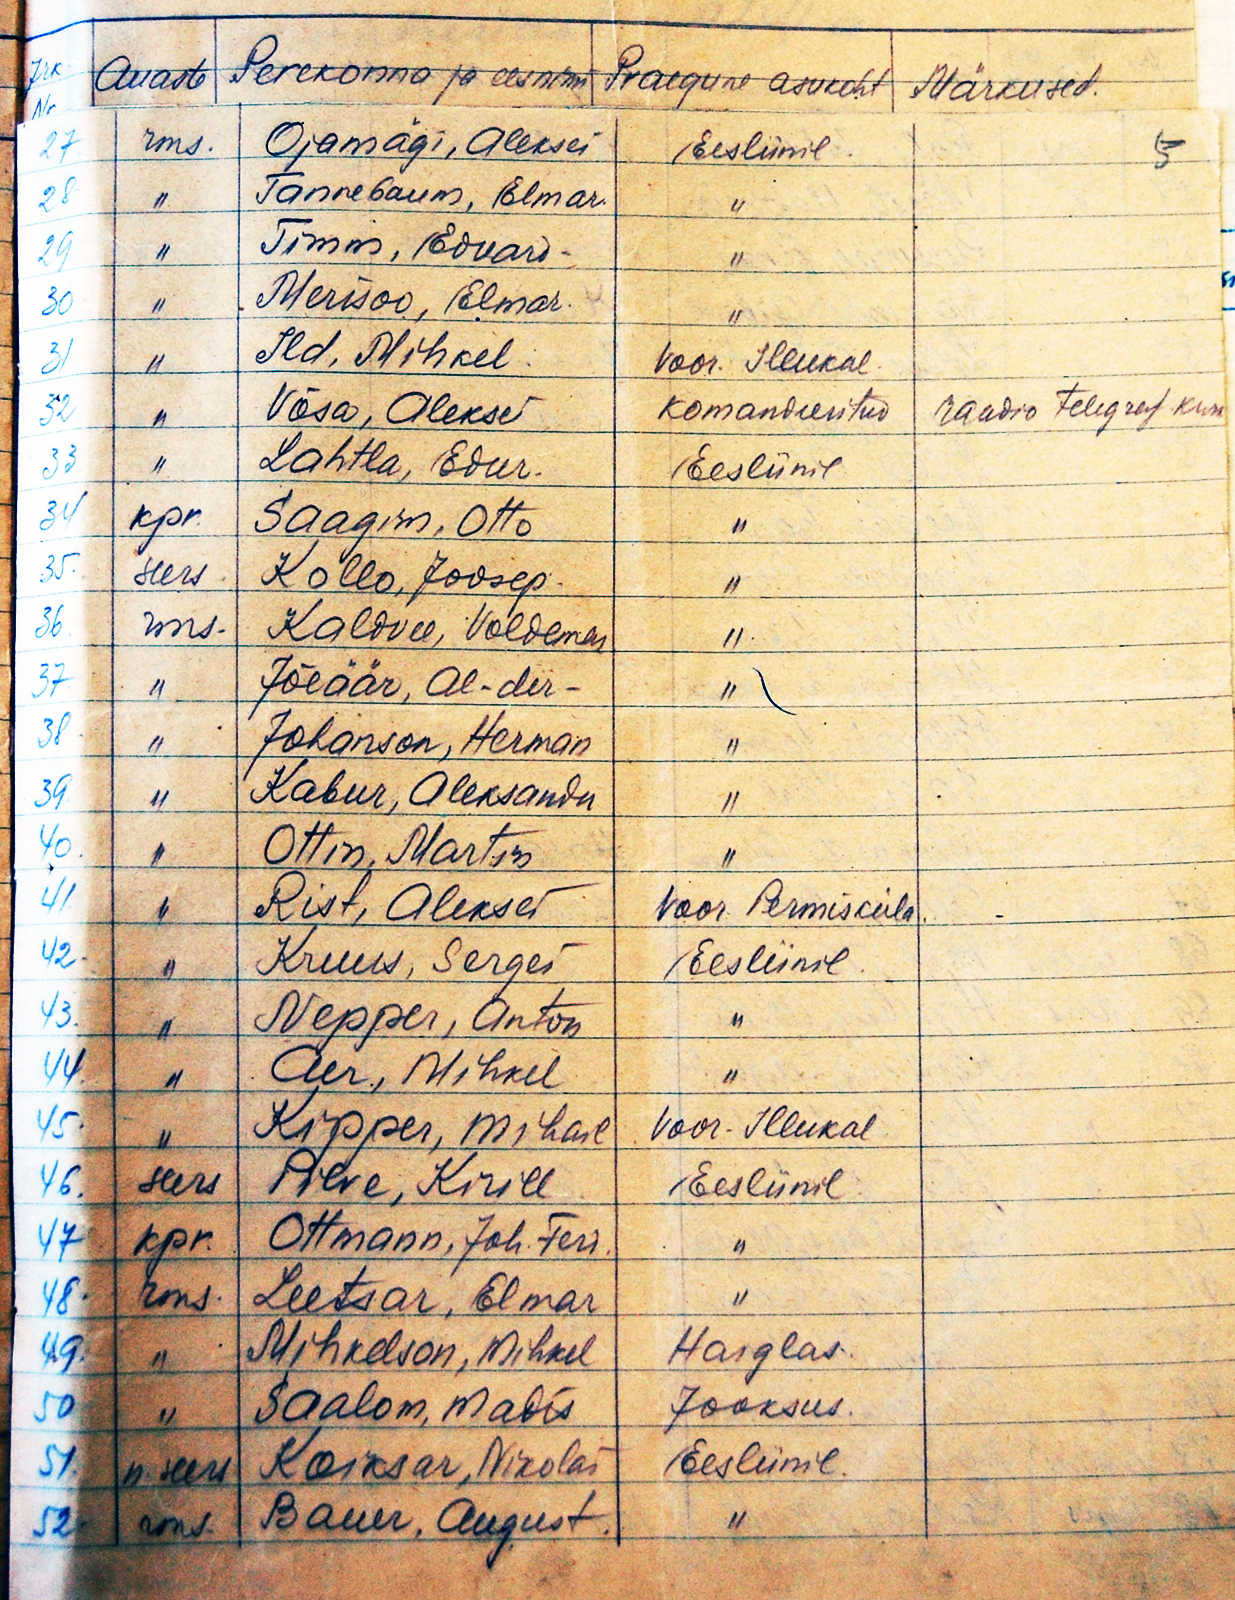 Jrk. Nr. Auaste Perekonna ja eesnimi Praegune asukoht Märkused.
5
27 rms. Ojamägi, Aleksei Eesliinil.
28 " Tannebaum, Elmar. "
29 " Timm, Eduard- "
30 " Merisoo, Elmar. "
31 " Ild, Mihkel. Voor. Illukal.
32 " Võsa, Aleksei Komandeeritud raadio Telegraf
33 " Lahtla, Edur. Eesliinil
34 kpr. Saagim, Otto "
35. seers. Kollo, Joosep. "
36. rms. Kaldvee, Voldemar "
37 " Jõeäär, Al-der- "
38 " Johanson, Herman "
39. " Kabur, Aleksander "
40. " Ottin, Martin "
41. " Rist, Aleksei Voor Permisküla.
42. " Kruus, Sergei Eesliinil.
43. " Nepper, Anton "
44. " Aer, Mihkel "
45. " Kipper, Mihail Voor. Illukal
46. seers Pilve, Kirill Eesliinil.
47 kpr. Ottmann, Joh. Ferd. "
48. rms. Leetsar, Elmar "
49. " Mihkelson, Mihkel Haiglas.
50 " Saalom, Madis Jooksus.
51. n. seers Koiksar, Nikolai Eesliinil.
52. rms. Bauer, August. "